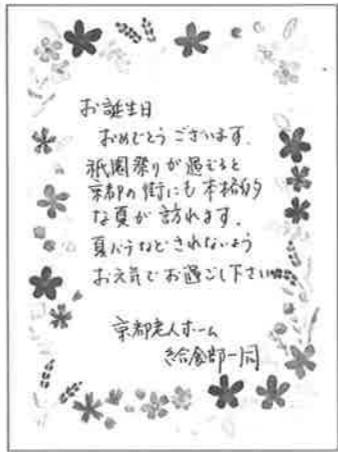 お誕生日
おめでとうございます.
祇園祭りが過ぎると
京都の街にも本格的
な夏が訪れます.
夏バテなどされないよう
お元気でお過ごし下さい
京都老人ホーム
給食部一同